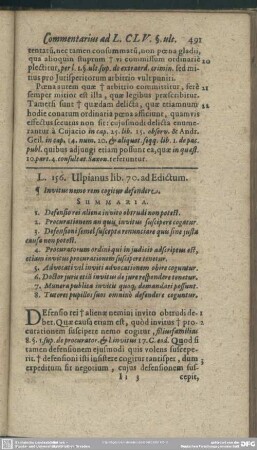 Commentarius ad L. CLV. §. ult. 491
tentatâ, nec tamen consummatâ, non pœna gladii,
qua alioquin stuprum † vi commissum ordinariè 10
plectitur, per l. 1. §. ult. sup. de extraord. crimin. sed mi-
tius pro Jurisperitorum arbitrio vult puniri.
Pœna autem quæ † arbitrio committitur, ferè 11
semper mitior est illa, quæ legibus præscribitur.
Tametsi sunt † quædam delicta, quæ etiamnum 12
hodie conatum ordinaria pœna afficiunt, quamvis
effectus secutus non sit: cujusmodi delicta enume-
rantur à Cujacio in cap. 25. lib. 15. observ. & Andr.
Geil. in cap. 14. num. 20. & aliquot sqqq. lib. 1. de pac.
publ. quibus adjungi etiam possunt ea, quæ in quæst.
10. part. 4. consultat. Saxon. referuntur.
L. 156. Ulpianus lib. 70. ad Edictum.
¶ Invitus nemo rem cogitur defendere.
SUMMARIA.
1. Defensio rei alienæ invito obtrudi non potest.
2. Procurationem an quis, invitus suscipere cogatur.
3. Defensioni semel suscepta renunciare quis sine justa
causa non potest.
4. Procuratorum ordini qui in judicio adscriptus est,
etiam invitus procurationem suscipere tenetur.
5. Advocati vel inviti advocationem obire coguntur.
6. Doctor juris etiā invitus de jure respondere tenetur.
7. Munera publica invitis quoq; demandari possunt.
8. Tutores pupillos suos omnino defendere coguntur.
DEfensio rei † alienæ nemini invito obtrudi de- 1
bet. Quæ causa etiam est, quòd invitus † pro- 2
curationem suscipere nemo cogitur, filius familias
8. §. 1. sup. de procurator. & l. invitus 17. C. eod. Quod si
tamen defensionem ejusmodi quis volens susceperit,
† defensioni illi insistere cogitur tantisper, 3
dum expeditum sit negotium, cujus defensionem sus-
Ii 3 cepit,